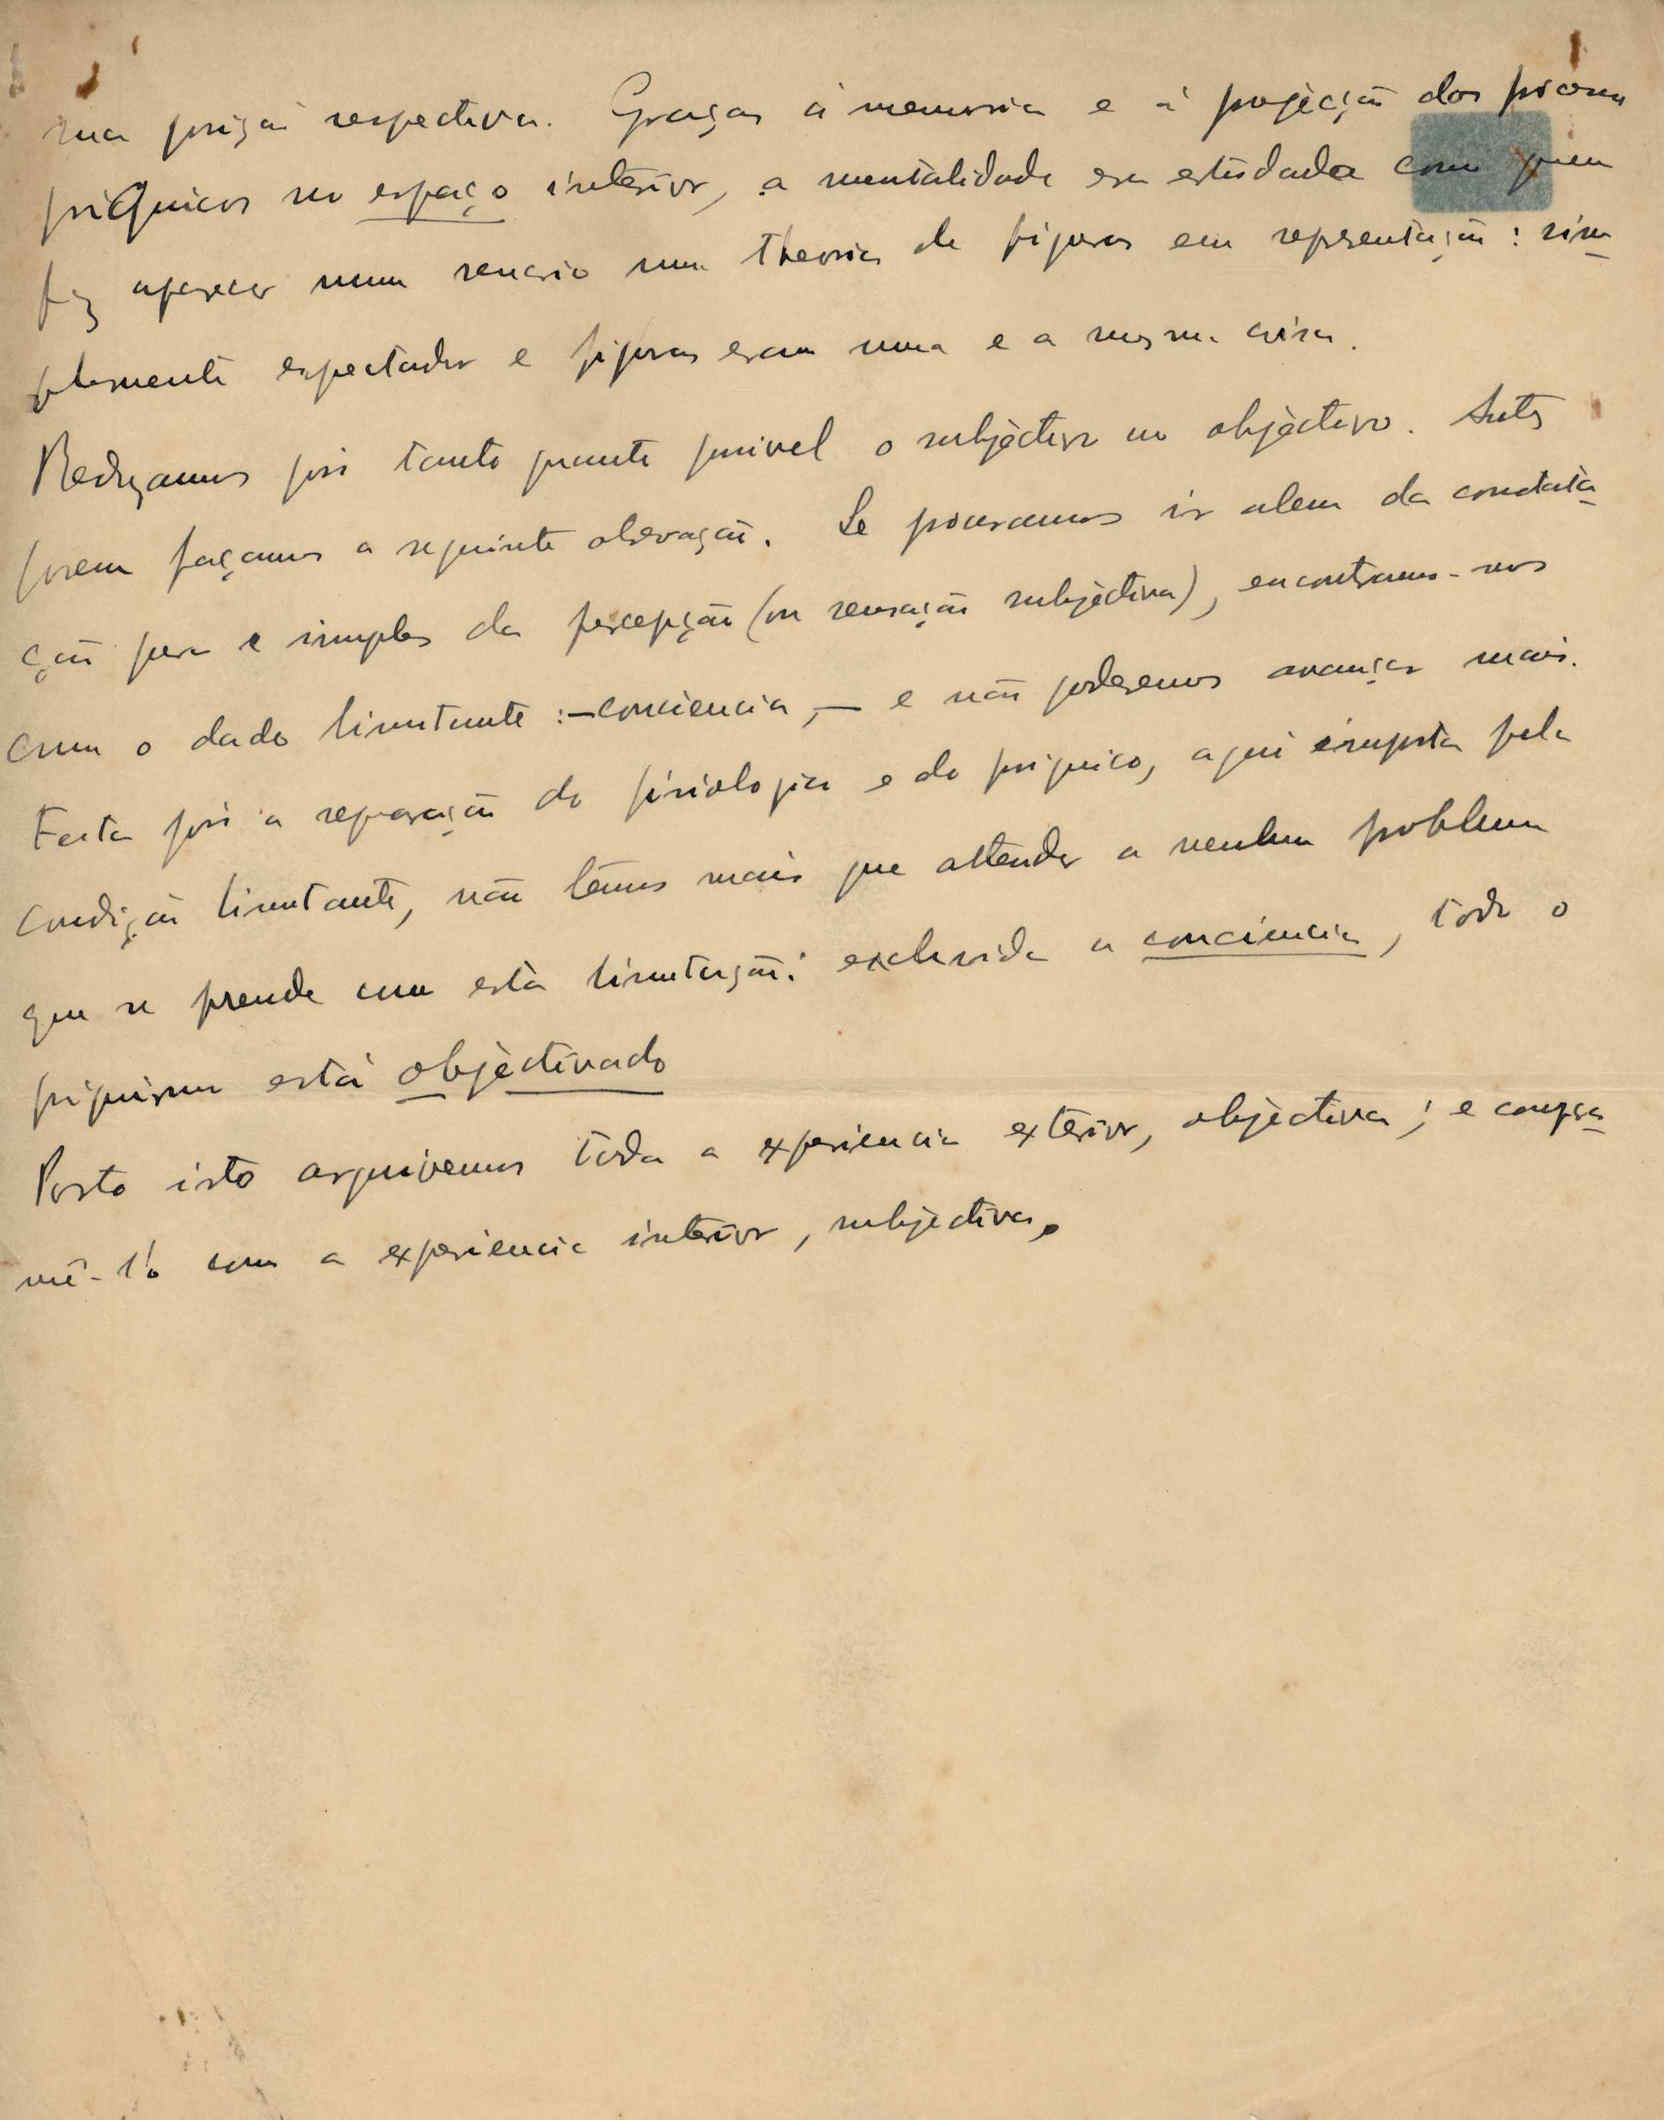 sua posição respectiva. Graças á memoria e á projècção dos processos
psiquicos no espaço interior, a mentalidade era estudada como quem
faz aparecer num scenario uma theoria de figuras em representação: sim-
plesmente espectador e figuras eram uma e a mesma coisa.
Reduzamos pois tanto quanto possivel o subjèctivo ao objèctivo. Antes
porem façamos a seguinte observação. Se procuramos ir alem da constata-
ção pura e simples da percepção (ou sensação subjèctiva), encontramo-nos
com o dado limitante :—conciencia,— e não poderemos avançar mais.
Feita pois a separação do fisiologico e do psiquico, aqui imposta pela
condição limitante, não têmos mais que attender a nenhum problema
que se prende com esta limitação: excluida a conciencia, todo o
psiquismo está objèctivado
Posto isto arquivemos toda a experiencia exterior, objèctiva; e
com a experiencia interior, subjèctiva.